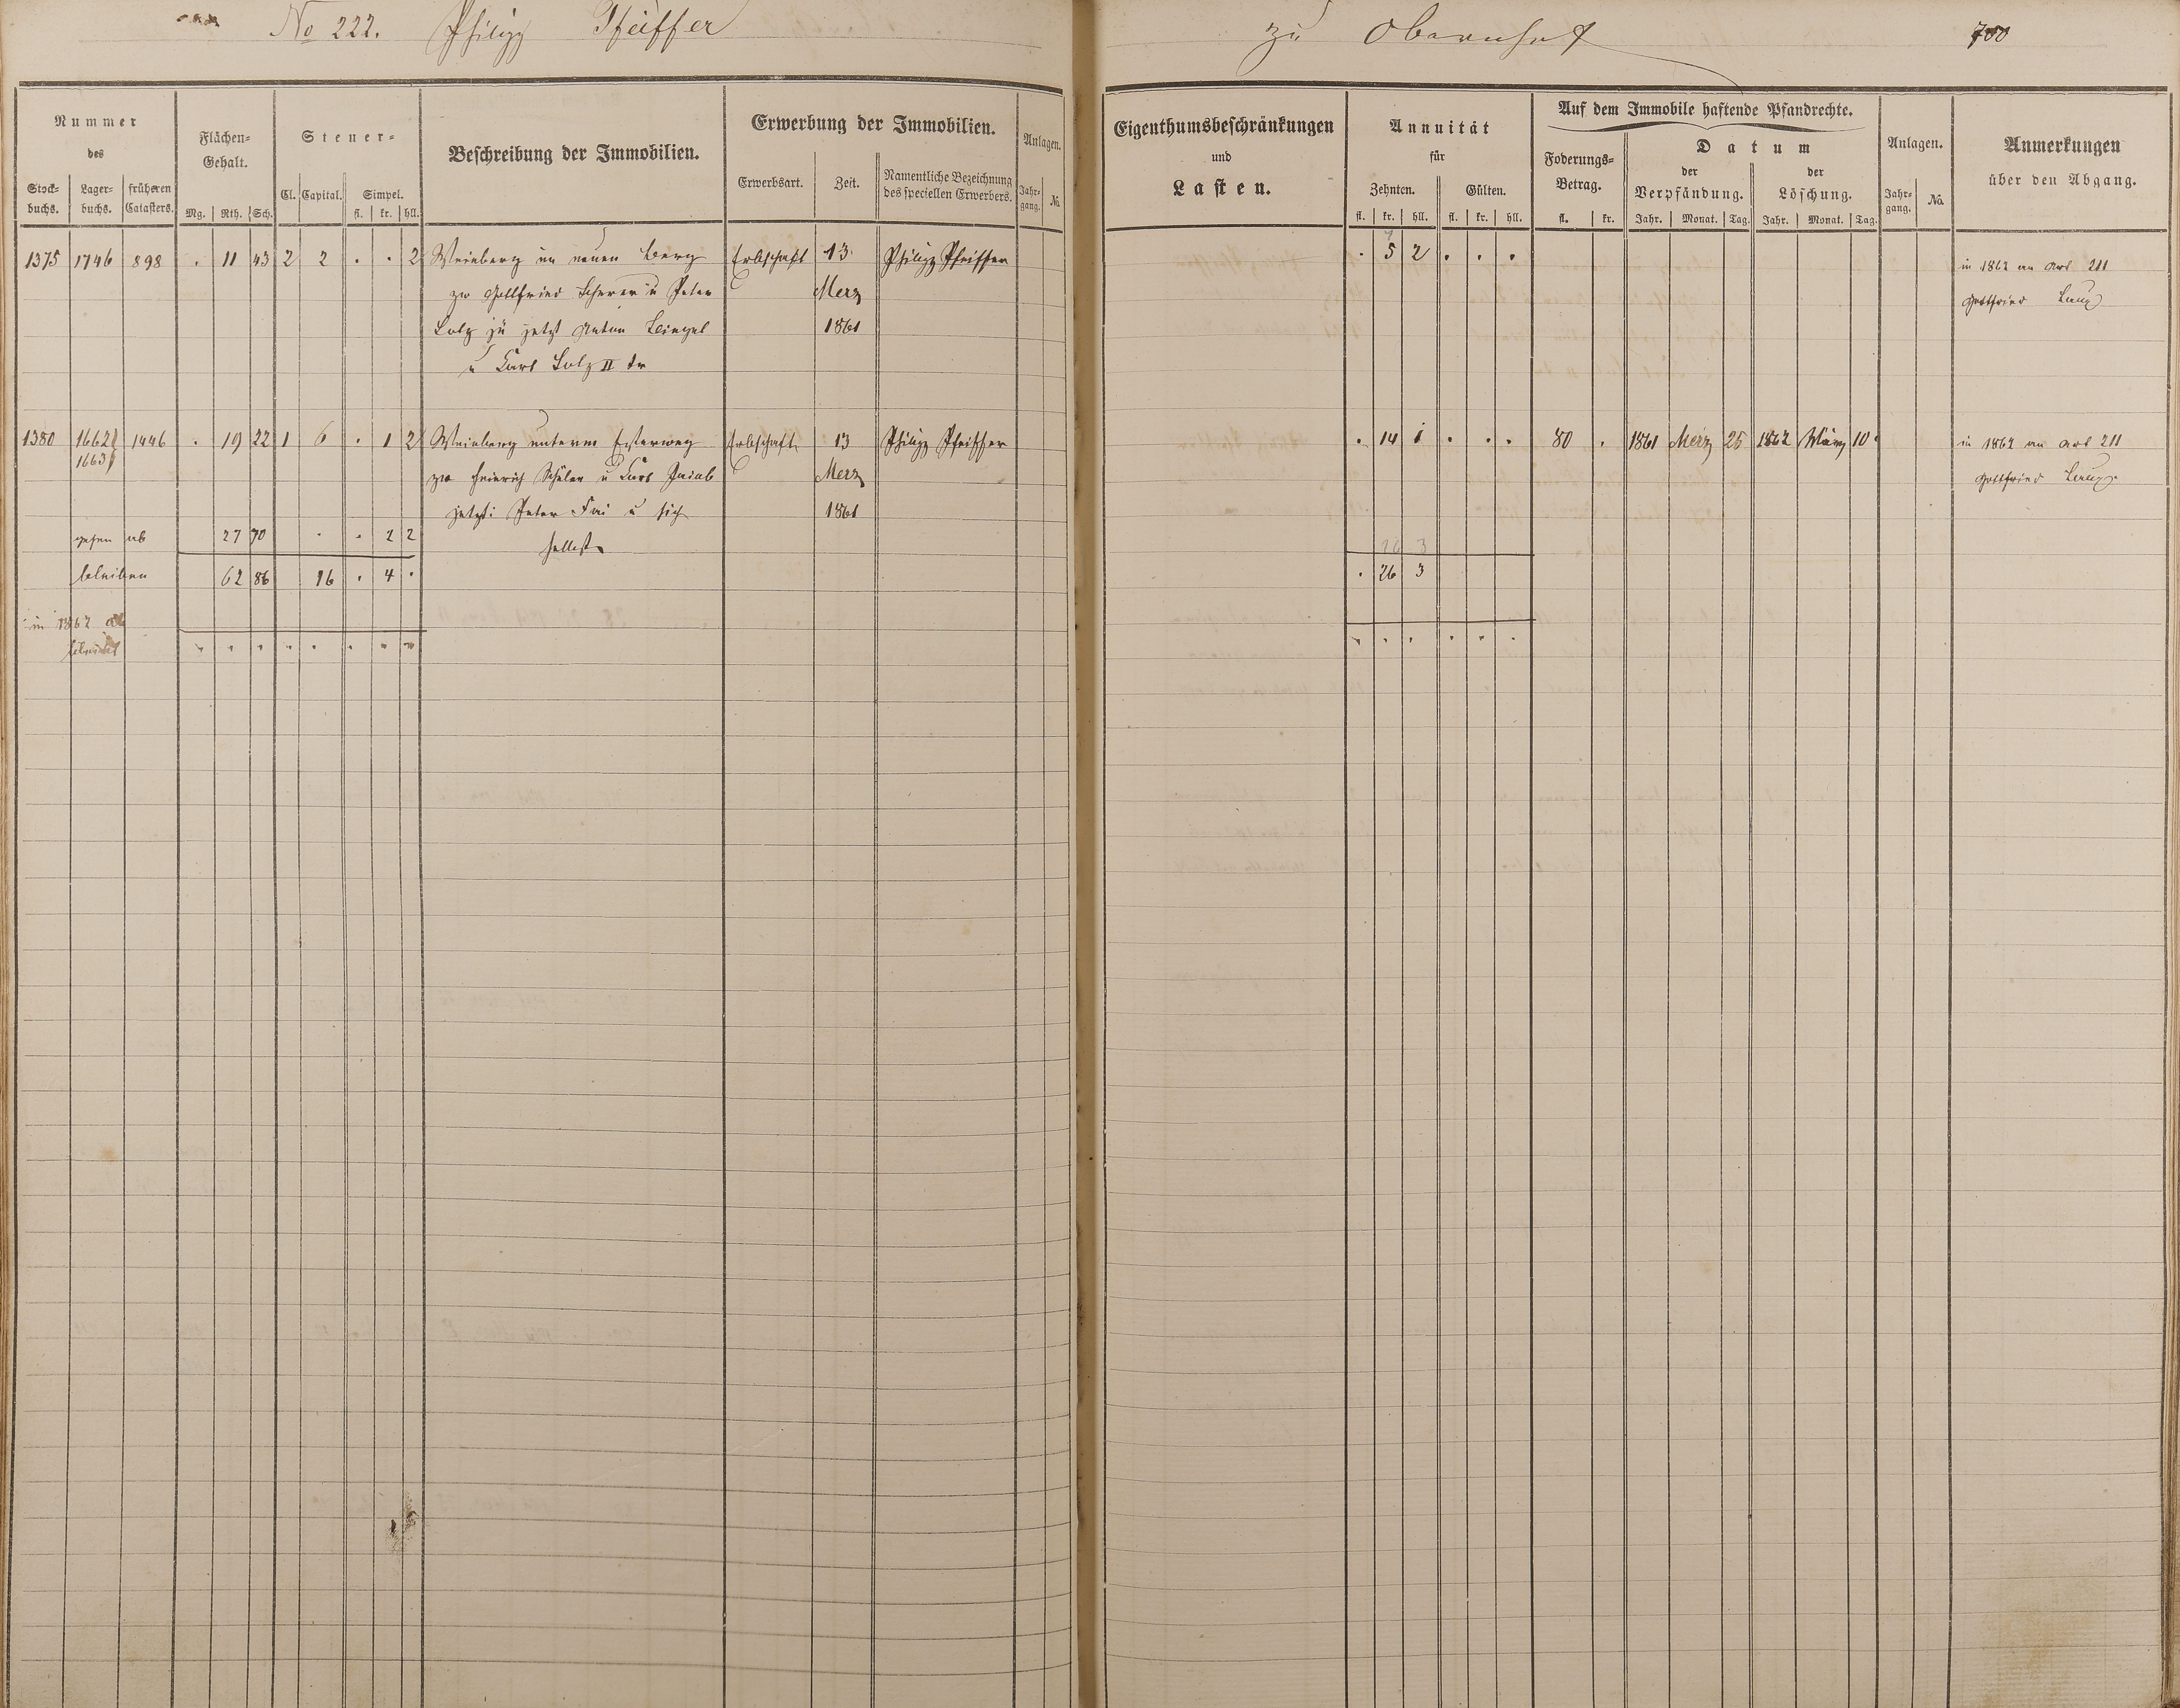 No 222. Philipp Pfeiffer
zu Obernhof
700
Nummer
des
Stock-
buchs.
Lager-
buchs.
früheren
Catasters.
Flächen-
Gehalt.
Mg. Rth. Sch.
Steuer-
Cl. Capital. Simpel.
fl. kr. hll.
Beschreibung der Immobilien.
Erwerbung der Immobilien.
Erwerbsart. Zeit. Namentliche Bezeichnung
des speciellen Erwerbers.
Anlagen.
Jahr-
gang. No.
Eigenthumsbeschränkungen
und
Lasten.
Annuität
für
Zehnten. Gülten.
fl. kr. hll. fl. kr. hll.
Auf dem Immobile haftende Pfandrechte.
Foderungs-
Betrag.
fl. kr.
Datum
der
Verpfändung.
Jahr. Monat. Tag.
der
Löschung.
Jahr. Monat. Tag.
Anlagen.
Jahr-
gang. No.
Anmerkungen
über den Abgang.
1375 1746 898 . 11 43 2 2 . . 2 Weinberg im neuen Berg Erbschaft 13 Philipp Pfeiffer . 5 2 . . . in 1862 an Art 211
zw Gottfried Scherer u Peter Merz Gottfried
zu jetzt Anton 1861
u Carl II
1380 1662 1446 . 19 22 1 6 . 1 2 Weinberg unterm Erbschaft 13 Philipp Pfeiffer . 14 1 . . . 80 . 1861 Merz 25 1862 März 10 in 1862 an Art 211
1663
zw Heinrich Schüler u Carl Jacob Merz Gottfried
jetzt: Peter u sich 1861
gehen ab 27 70 . . 2 2 selbst
bleiben 62 86 16 . 4 . . 26 3
in 1862 ab
bleibt